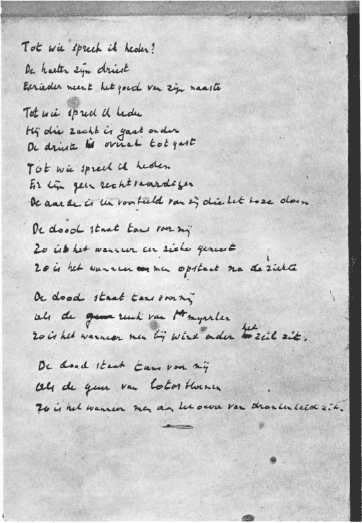 Tot wie spreek ik heden?
De harten zijn driest
Eenieder neemt het goed van zijn naaste
Tot wie spreek ik heden
Hij die zacht is gaat onder
De drieste is overal tot gast
Tot wie spreek ik heden
Er zijn geen rechtvaardigen
De aarde is een voorbeeld van zij die het boze doen
De dood staat tans voor mij
Zo is het wanneer een zieke geneest
Zo is het wanneer men opstaat na de ziekte
De dood staat tans voor mij
Als de reuk van myrrhen
Zo is het wanneer men bij wind onder het zeil zit.
De dood staat tans voor mij
Als de geur van lotosbloemen
Zo is het wanneer men aan de oever van dronkenheid zit.